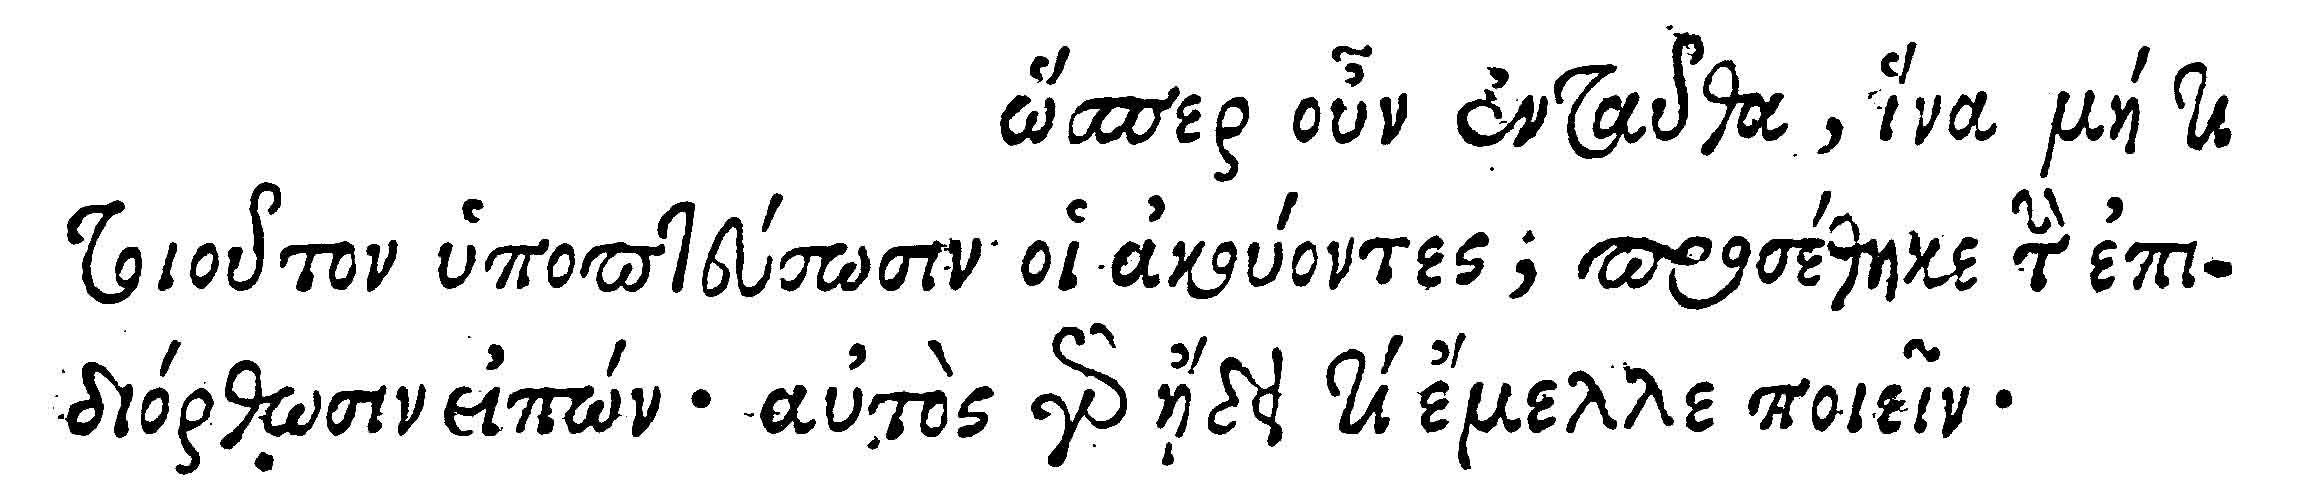 ὥσπερ οὖν ἐνταῦθα, ἵνα μή τι
τοιοῦτον ὑποπτεύσωσιν οἱ ἀκούοντες; προσέθηκε τὴν ἐπι-
διόρθωσιν εἰπών· αὐτὸς γὰρ ᾔδει τί ἔμελλε ποιεῖν·